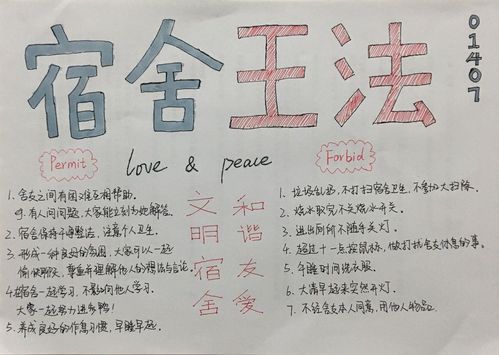 宿舍王法
01407
Permit
love & peace
Forbid
文明宿舍
和谐友爱
1. 舍友之间有困难互相帮助。
eg. 有人问问题，大家能立刻为她解答。
2. 宿舍保持干净整洁，注意个人卫生。
3. 形成一种良好的氛围，大家可以一起
愉快聊天，尊重并理解他人的想法与言论。
4. 在宿舍一起学习，不影响他人学习。
大家一起努力进步鸭！
5. 养成良好的作息习惯，早睡早起。
1. 垃圾乱扔，不打扫宿舍卫生，不参加大扫除。
2. 烧水取完不关烧水开关。
3. 进出厕所不随手关灯。
4. 超过十一点按鼠标，做打扰舍友休息的事。
5. 午睡时间洗衣服。
6. 大清早起来突然开灯。
7. 不经舍友本人同意，用他人物品。